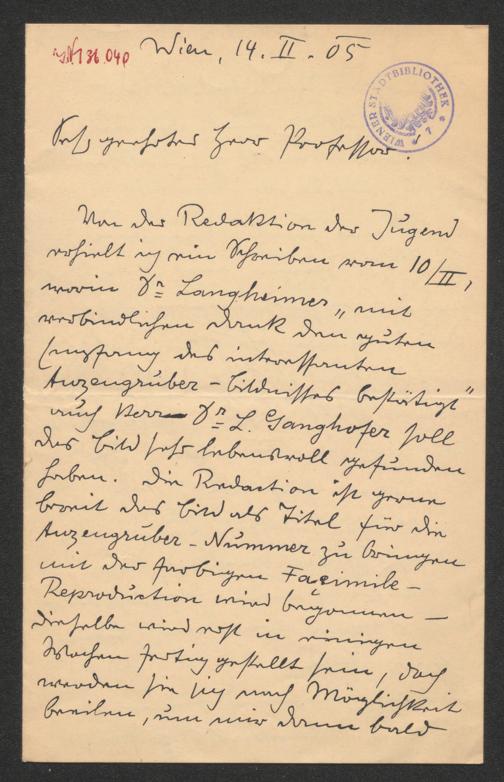 J.N. 136.040
Wien, 14. II. 05
WIENER STADTBIBLIOTHEK
* 7 *
Sehr geehrter Herr Professor!
Von der Redaktion der Jugend
erhielt ich ein Schreiben vom 10/II,
worin Dr. Langheimer „mit
verbindlichen Dank den guten
Empfang des interessanten
Anzengruber-Bildnisses bestätigt"
auch Herr Dr. L. Ganghofer soll
das Bild sehr lebensvoll gefunden
haben. Die Redaction ist gerne
bereit das Bild als Titel für die
Anzengruber-Nummer zu bringen
mit der farbigen Facimile-
Reproduction wird begonnen —
dieselbe wird erst in einigen
Wochen fertig gestellt sein, doch
werden sie sich nach Möglichkeit
beeilen, um mir dann bald